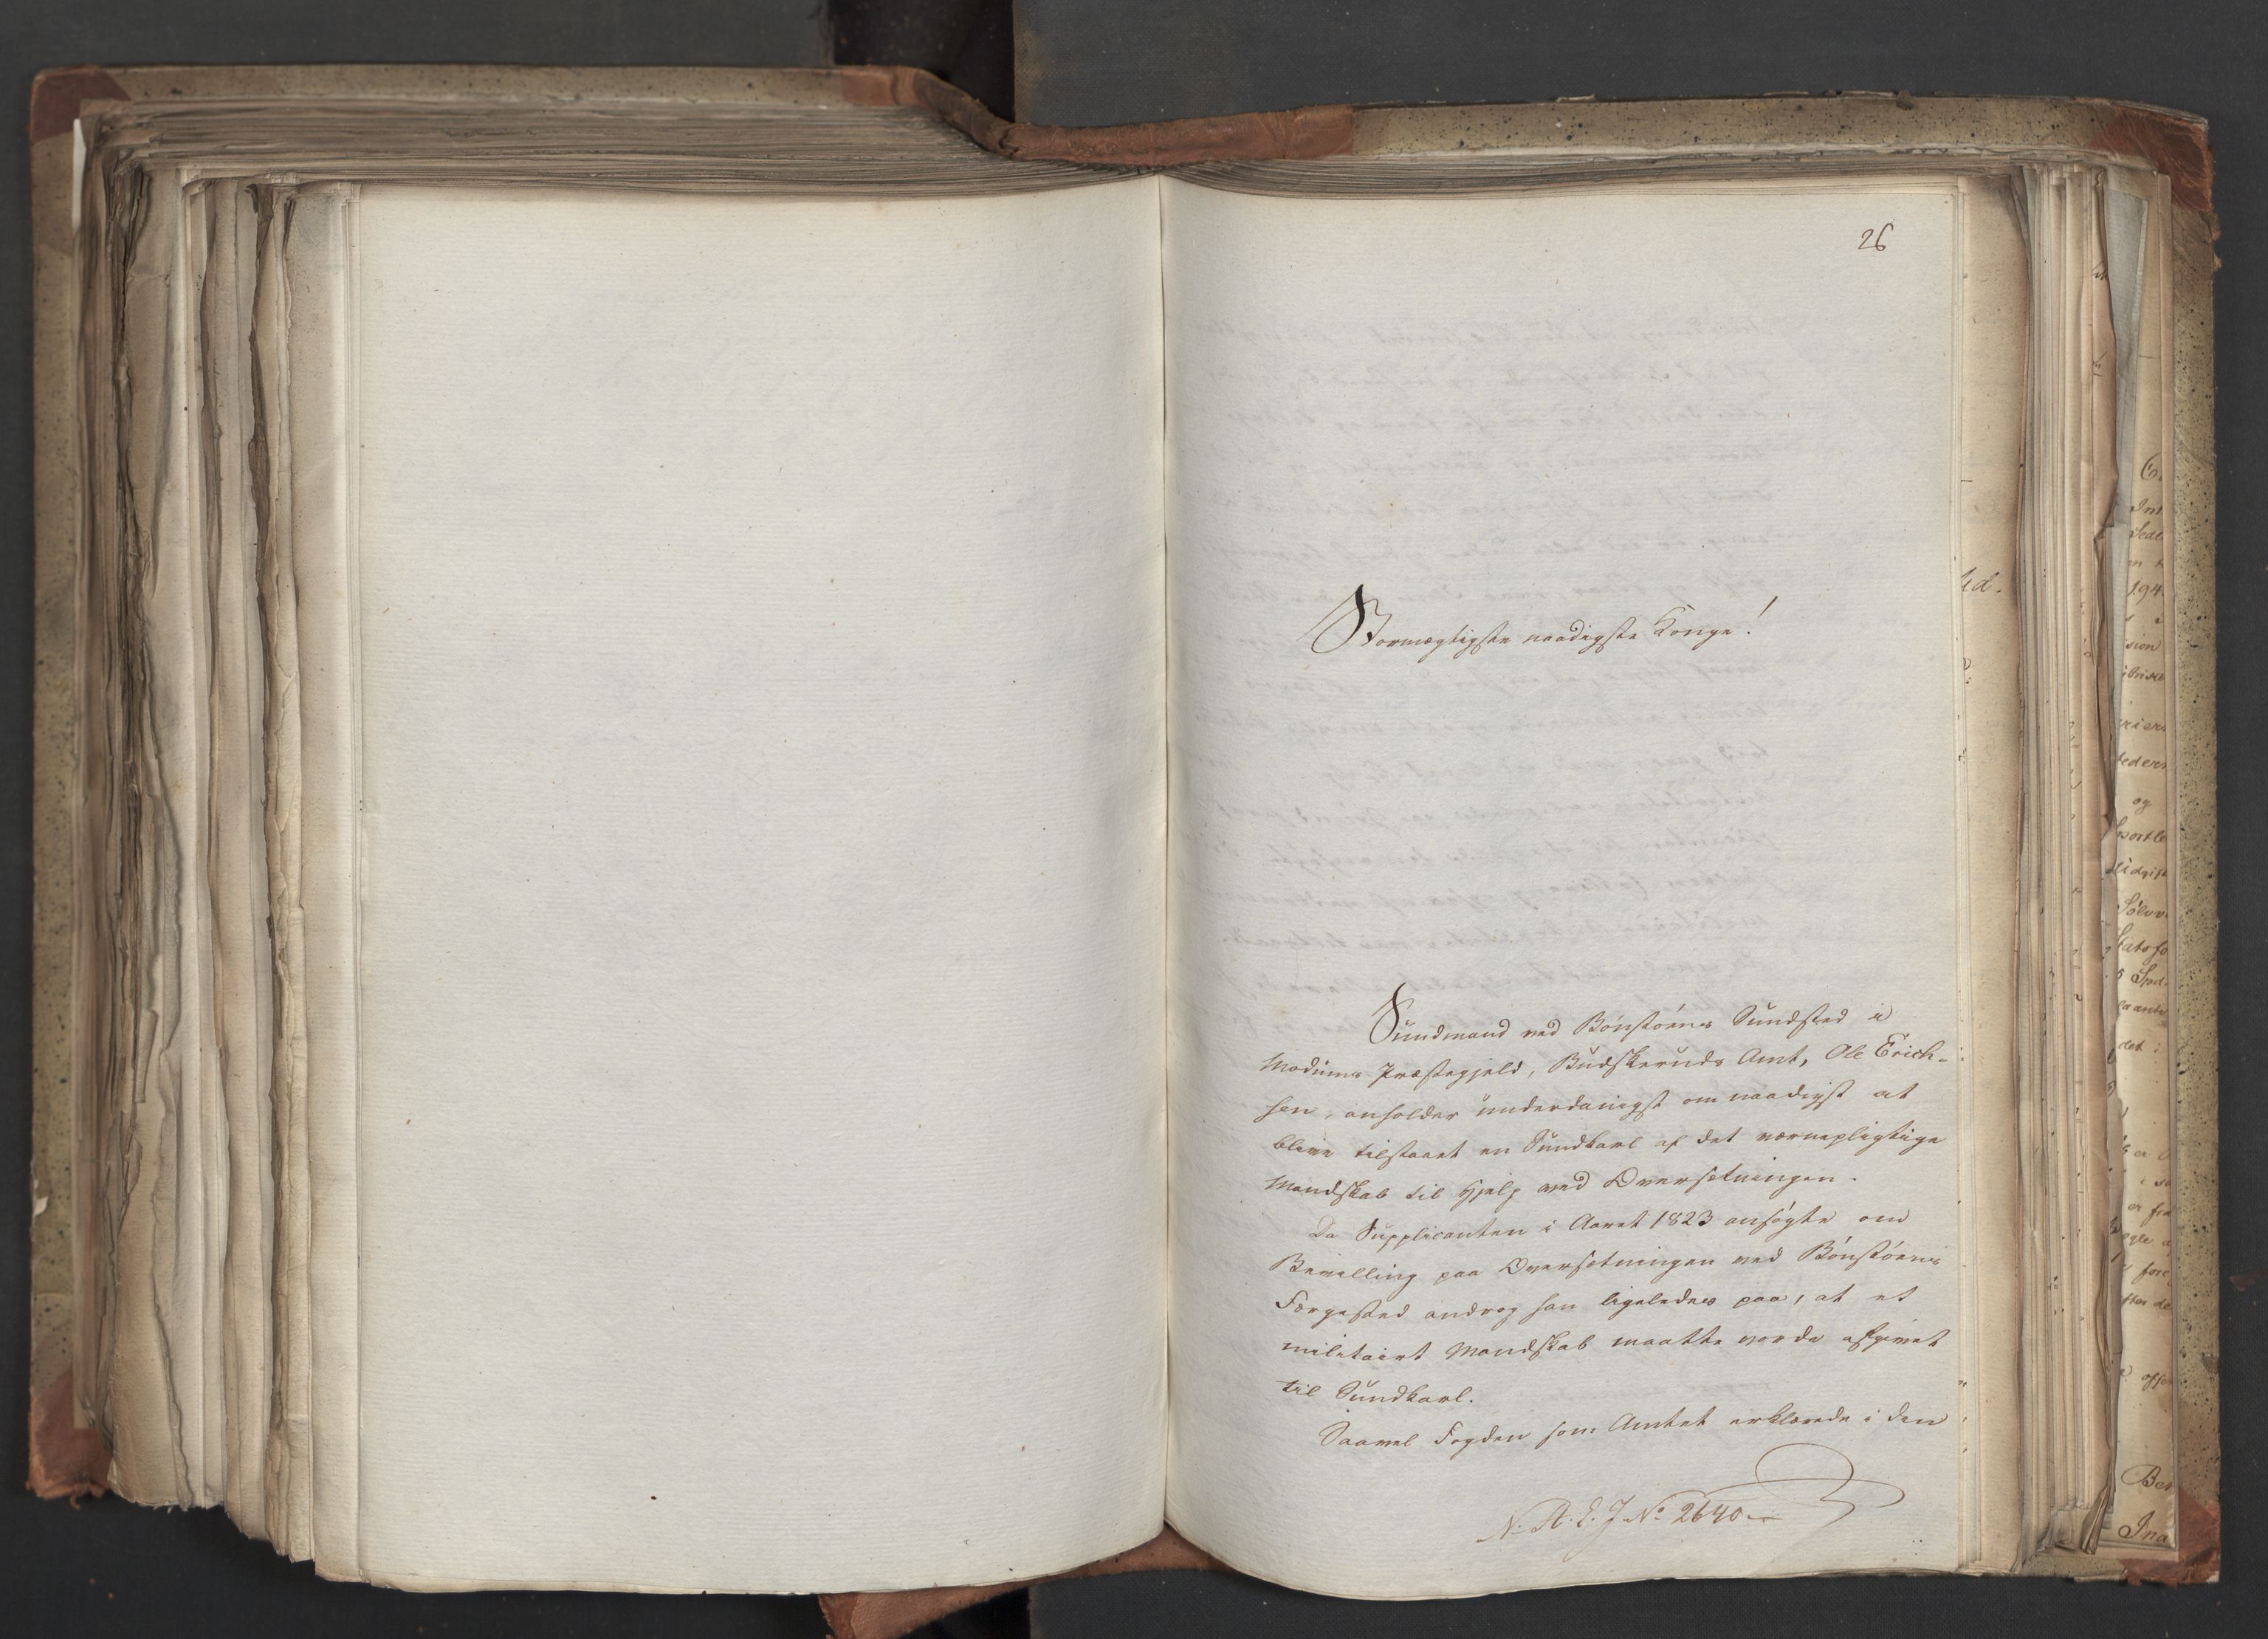 26
Stormægtigste naadigste Konge!
Sundmand ved Bønstøens Sundsted i
Modums Præstegjeld, Budskeruds Amt, Ole Erich-
sen, anholder underdanigst om naadigst at
blive tilstaaet en Sundkarl af det værnepligtige
Mandskab til Hjelp ved Oversetningen.
Da Supplicanten i Aaret 1823 ansøgte om
Bevelling paa Oversetningen ved Bønstøens
Færgested androg han ligeledes paa, at et
militairt Mandskab maatte vorde afgivet
til Sundkarl.
Saavel Fogden som Amtet erklærede i den
N. A. E. J. No 2640